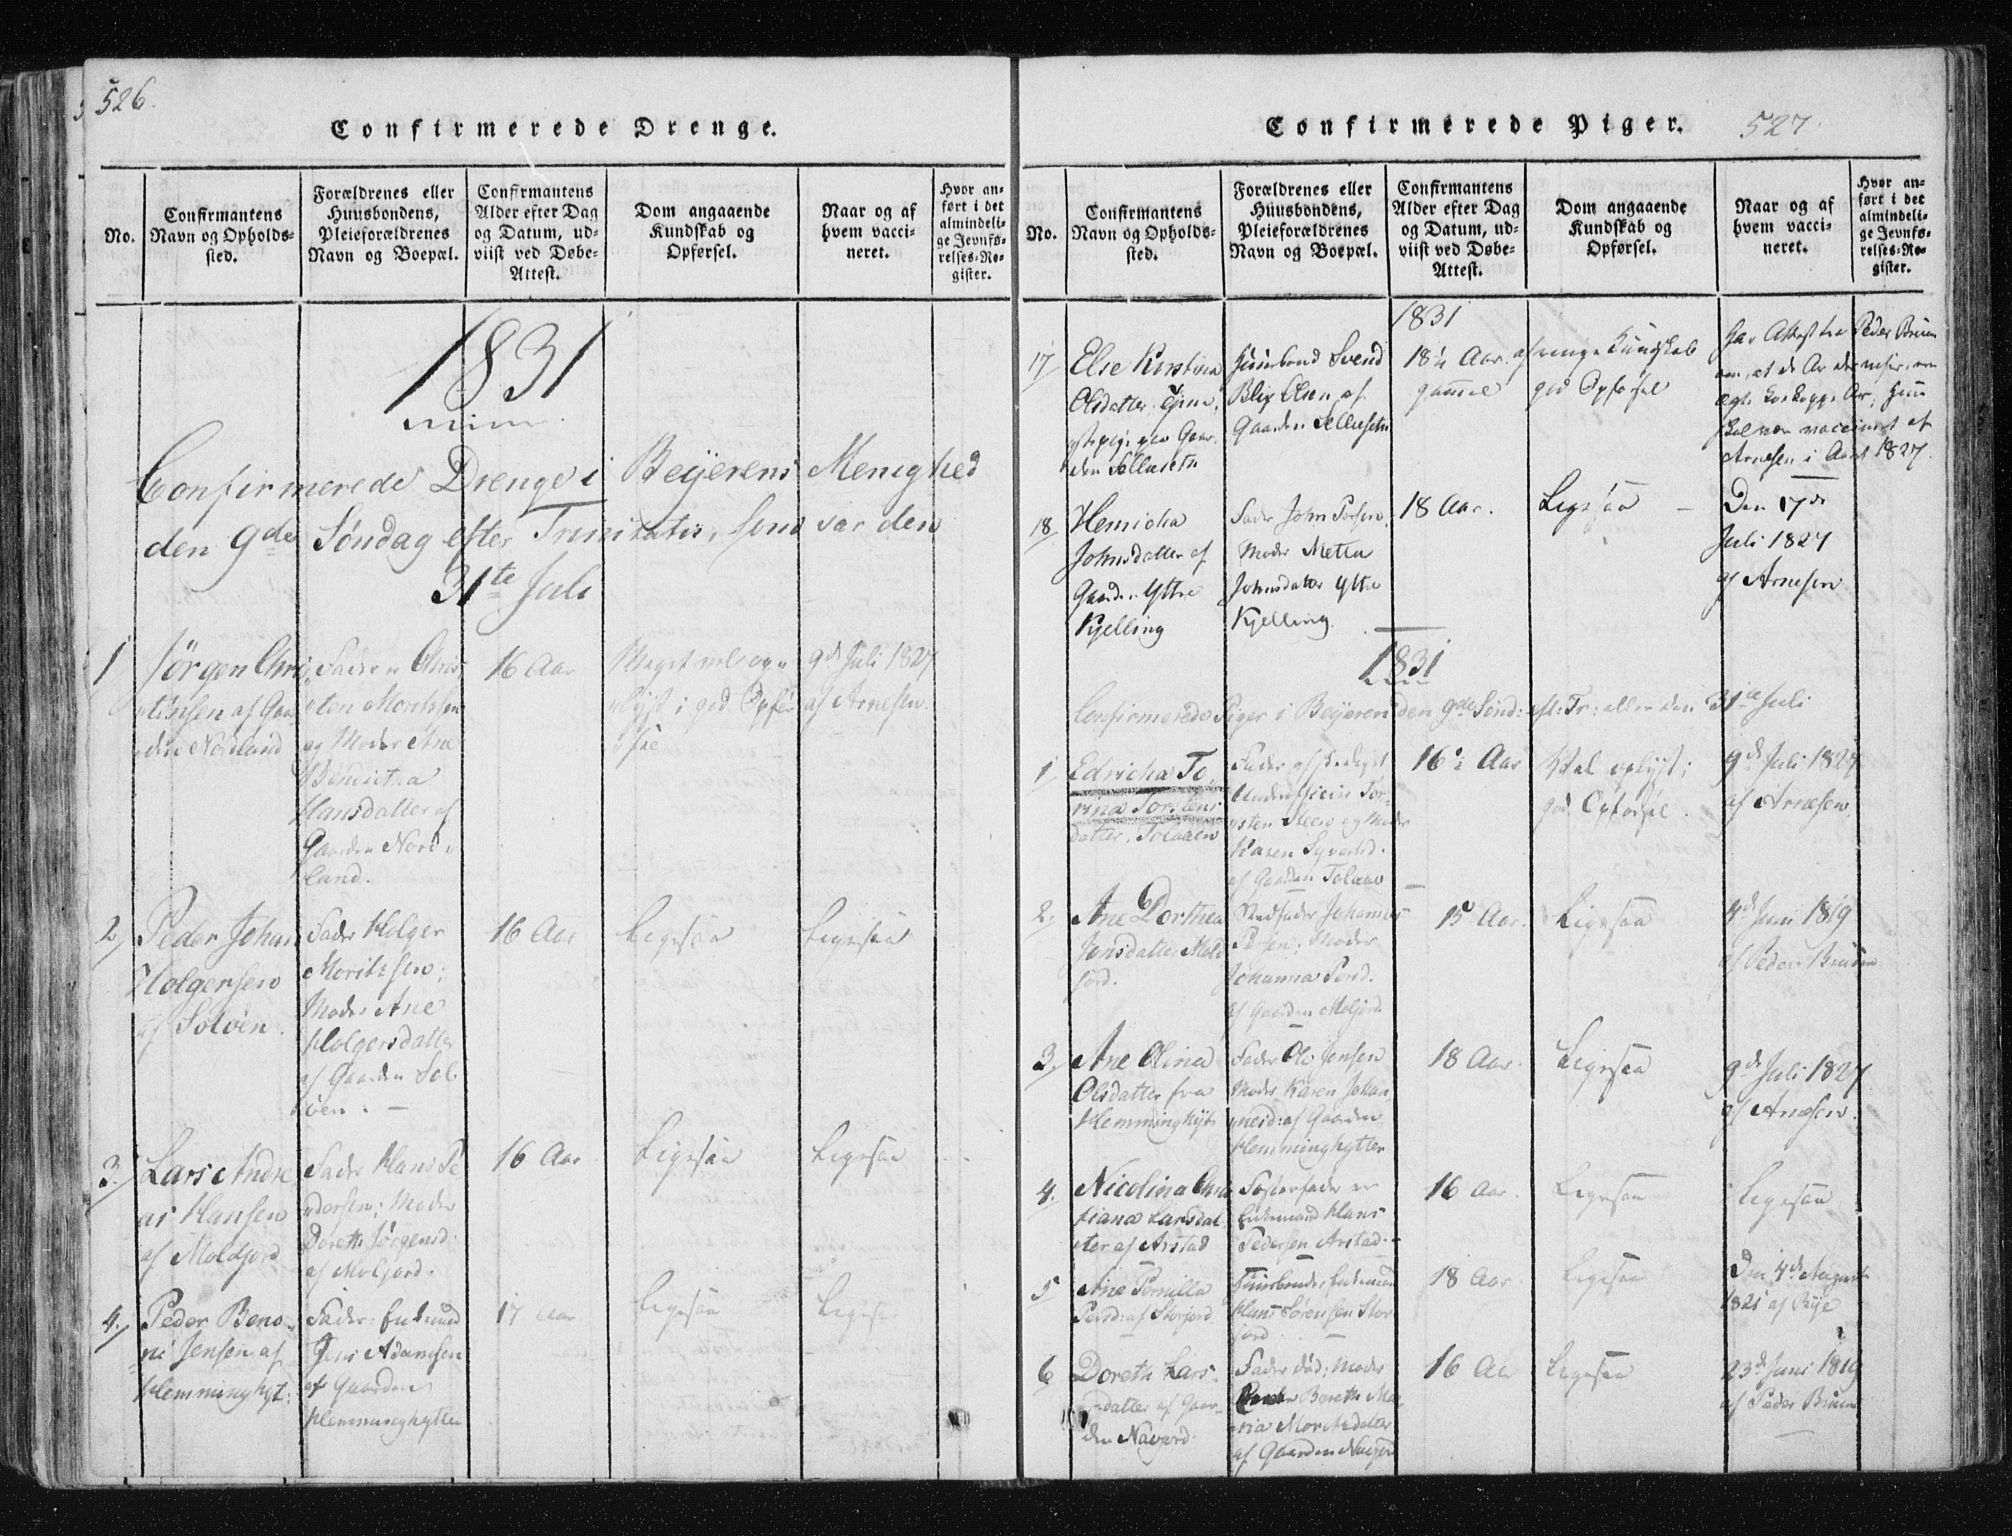 526.
Confirmerede Drenge.
No.
Confirmantens
Navn og Opholds-
sted.
Forældrenes eller
Huusbondens,
Pleieforældrenes
Navn og Boepæl.
Confirmantens
Alder efter Dag
og Datum, ud-
viist ved Døbe-
Attest.
Dom angaaende
Kundskab og
Opførsel.
Naar og af
hvem vacci-
neret.
Hvor an-
ført i det
almindeli-
ge Jevnfø-
relses-Re-
gister.
1831
Confirmerede Drenge i Beijerens Menighed
den 9de Søndag efter Trinitatis, som var den
31te Juli
1
Jørgen Chri
stensen af Gaa
den Nordland
Fader Chri
sten Moritssen
og Moder Ane
Hansdatter af
Gaarden Nord
land.
16 Aar
Meget vel op
lyst i god Opfør
9de Juli 1827
af Arnesen.
2
Peder Johan
Holgersen
af Soløen.
Fader Holger
Moritssen;
Moder Ane
Holgersdatter
af Gaarden Sol
øen. -
16 Aar
Ligesaa
Ligesaa
3.
Lars Andre
as Hansen
af Moldjord
Fader Hans Pe
dersen; Moder
Doreth Jørgensd.
af Moljord.
16 Aar
Ligesaa
Ligesaa
4.
Peder Beno
ni Jensen af
Hemminghyt:
Fader:
Jens Adamsen
af Gaarden
Hemminghytten
17 Aar
Ligesaa
Ligesaa
Confirmerede Piger.
527.
No.
Confirmantens
Navn og Opholds-
sted.
Forældrenes eller
Huusbondens,
Pleieforældrenes
Navn og Boepæl.
Confirmantens
Alder efter Dag
og Datum, ud-
viist ved Døbe-
Attest.
Dom angaaende
Kundskab og
Opførsel.
Naar og af
hvem vacci-
neret.
Hvor an-
ført i det
almindeli-
ge Jevnfø-
relses-Re-
gister.
1831
17
Else Kirstina
Olsdatter, Tjene
stepige paa Gaar
den Sellesetn
Huusbond Svend
Blix Olsen af
Gaarden Sellesetn
18½ Aar
gammel
af ringe Kundskab
god Opførsel
Har Attest fra Peder Bruun
vaccineret af
Arnesen i Aaret 1827.
18
Henricha
Johnsdatter af
Gaarden Yttre
Kjelling
Fader John Persen,
Moder Metta
Johnsdatter Yttre
Kjelling.
18 Aar.
Ligesaa -
Den 17de
Juli 1827
af Arnesen
1831
Confirmerede Piger i Beijeren den 9de Sønd: eft: Tr: eller den 31te Juli
1
Edricha To
rina Torstens
datter. Tolaaen
Fader afskediget
Underofficier Tor
sten og Moder
Karen Syversd.
af Gaarden Tolaae
16½ Aar
Vel oplyst;
god Opførsel.
9de Juli 1827
af Arnesen.
2.
Ane Dorthea
Jensdatter Mold
jord.
Stedfader Johannes
Persen; Moder
Johanna Persd.
af Gaarden Moljord.
15 Aar.
Ligesaa
4de Juni 1819
af Peder Bruun
3.
Ane Olina
Olsdatter fra
Hemminghyt:
Fader Ole Jensen
Moder Karen Johan
nesd: af Gaarden
Hemminghytten
18 Aar.
Ligesaa
9de Juli 1827
af Arnesen.
4.
Nicolina Chri
stiana Larsdat
ter af Arstad
Fosterfader er
Enkemand Hans
Pedersen Arstad. -
16 Aar.
Ligesaa
Ligesaa
5
Ane Pernilla
Persd: af Storjord
Huusbonde, Enkemand
Hans Sørensen Stor
jord.
18 Aar
Ligesaa
Den 4de August
1821 af
6
Doreth Lars
datter af Gaar
den
Fader død; Moder
Bereth Ma
ria Moritsdatter
af Gaarden
16 Aar
Ligesaa
23de Juni 1819
af Peder Bruun